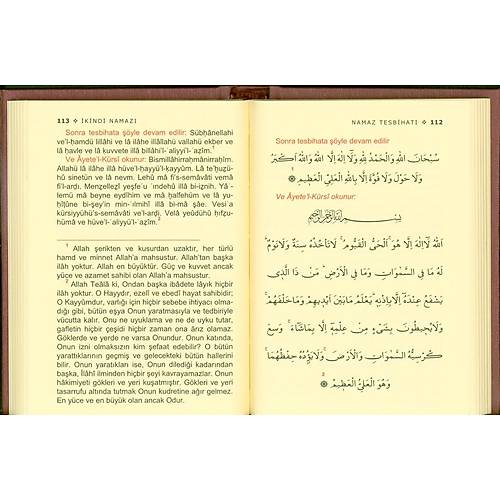 113 ❖ İKİNDİ NAMAZI
Sonra tesbihata şöyle devam edilir: Sübḥânellahi
ve'l-ḥamdü lillâhi ve lâ ilâhe illâllahü vallahü ekber ve
lâ ḥavle ve lâ kuvvete illâ billâhi'l-aliyyi'l-aẓîm.1
Ve Âyete'l-Kürsî okunur: Bismillâhirraḥmânirraḥîm.
Allahü lâ ilâhe illâ hüve'l-ḥayyü'l-kayyûm. Lâ te'ḫuẕü-
hû sinetün ve lâ nevm. Lehû mâ fi's-semâvâti vemâ
fi'l-arḍı. Menẕelleẕî yeşfe'u 'ındehû illâ bi-iẕnih. Yâ'-
lemü mâ beyne eydîhim ve mâ ḫalfehüm ve lâ yu-
ḥîṭûne bi-şey'in min-'ılmihî illâ bi-mâ-şâe. Vesi'a
kürsiyyühü's-semâvâti ve'l-arḍ. Velâ yeûdühû ḥıfẓu-
hümâ ve hüve'l-'aliyyü'l-'aẓîm.2
1 Allah şerikten ve kusurdan uzaktır, her türlü
hamd ve minnet Allah'a mahsustur. Allah'tan başka
ilâh yoktur. Allah en büyüktür. Güç ve kuvvet ancak
yüce ve azamet sahibi olan Allah'a mahsustur.
2 Allah Teâlâ ki, Ondan başka ibâdete lâyık hiçbir
ilâh yoktur. O Hayydır, ezelî ve ebedî hayat sahibidir;
O Kayyumdur, varlığı için hiçbir sebebe ihtiyacı olma-
dığı gibi, bütün eşya Onun yaratmasıyla ve tedbiriyle
vücutta kalır. Onu ne uyuklama ve ne de uyku tutar,
gafletin hiçbir çeşidi hiçbir zaman ona ârız olamaz.
Göklerde ve yerde ne varsa Onundur. Onun katında,
Onun izni olmaksızın kim şefaat edebilir? O bütün
yarattıklarının geçmiş ve gelecekteki bütün hallerini
bilir. Onun yarattıkları ise, Onun dilediği kadarından
başka, İlâhî ilminden hiçbir şeyi kavrayamazlar. Onun
hâkimiyeti gökleri ve yeri kuşatmıştır. Gökleri ve yeri
tasarrufu altında tutmak Onun kudretine ağır gelmez.
En yüce ve en büyük olan ancak Odur.
NAMAZ TESBİHATI ❖ 112
Sonra tesbihata şöyle devam edilir
سُبْحَانَ اللّٰهِ وَالْحَمْدُ لِلّٰهِ وَلَٓا اِلٰهَ اِلَّا اللّٰهُ وَاللّٰهُ اَكْبَرُ
وَلَا حَوْلَ وَلَا قُوَّةَ اِلَّا بِاللّٰهِ الْعَلِيِّ الْعَظِيمِ
Ve Âyete'l-Kürsî okunur:
بِسْمِ اللّٰهِ الرَّحْمٰنِ الرَّحِيمِ
اَللّٰهُ لَٓا اِلٰهَ اِلَّا هُوَ ۚ اَلْحَيُّ الْقَيُّومُ ۚ لَا تَأْخُذُهُ سِنَةٌ وَلَا نَوْمٌ ۚ
لَهُ مَا فِي السَّمٰوَاتِ وَمَا فِي الْاَرْضِ ۚ مَنْ ذَا الَّذِي
يَشْفَعُ عِنْدَهُٓ اِلَّا بِاِذْنِهِ ۚ يَعْلَمُ مَا بَيْنَ اَيْدِيهِمْ وَمَا خَلْفَهُمْ ۚ
وَلَا يُحِيطُونَ بِشَيْءٍ مِنْ عِلْمِهِٓ اِلَّا بِمَا شَٓاءَ ۚ وَسِعَ
كُرْسِيُّهُ السَّمٰوَاتِ وَالْاَرْضَ ۚ وَلَا يَؤُدُهُ حِفْظُهُمَا ۚ
وَهُوَ الْعَلِيُّ الْعَظِيمُ 2